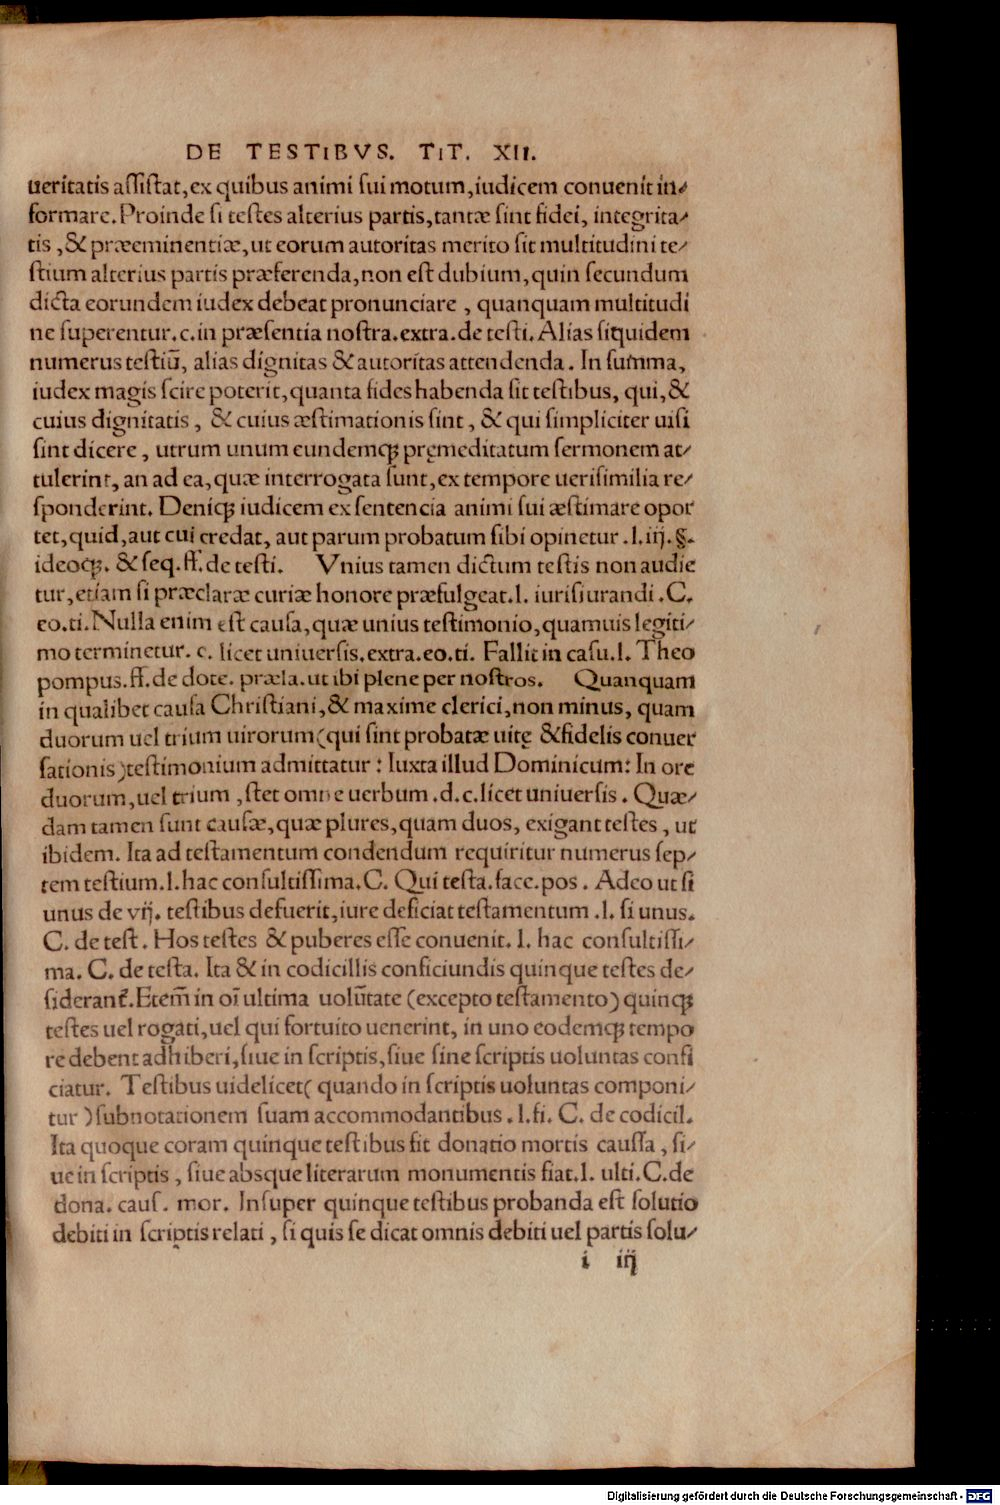 DE TESTIBVS. TIT. XII.
ueritatis assistat,ex quibus animi sui motum,iudicem conuenit in⸗
formare.Proinde si testes alterius partis,tantæ sint fidei, integrita⸗
tis ,& præeminentiæ,ut eorum autoritas merito sit multitudini te⸗
stium alterius partis præferenda,non est dubium,quin secundum
dicta eorundem iudex debeat pronunciare , quanquam multitudi
ne superentur.c.in præsentia nostra.extra.de testi.Alias siquidem
numerus testiū, alias dignitas & autoritas attendenda. In summa,
iudex magis scire poterit,quanta fides habenda sit testibus, qui,&
cuius dignitatis , & cuius æstimationis sint , & qui simpliciter uisi
sint dicere , utrum unum eundemqꝫ pręmeditatum sermonem at⸗
tulerint, an ad ea,quæ interrogata sunt,ex tempore uerisimilia re⸗
sponderint. Deniqꝫ iudicem ex sentencia animi sui æstimare opor
tet,quid,aut cui credat, aut parum probatum sibi opinetur .l.iij.§.
ideoqꝫ. & seq.ff.de testi. Vnius tamen dictum testis non audie
tur,etiam si præclaræ curiæ honore præfulgeat.l. iurisiurandi .C.
eo.ti.Nulla enim est causa,quæ unius testimonio,quamuis legiti⸗
mo terminetur. c. licet uniuersis.extra.eo.ti. Fallit in casu.l. Theo
pompus.ff.de dote. præla.ut ibi plene per nostros. Quanquam
in qualibet causa Christiani,& maxime clerici,non minus, quam
duorum uel trium uirorum(qui sint probatæ uitę &fidelis conuer
sationis)testimonium admittatur : Iuxta illud Dominicum: In ore
duorum,uel trium ,stet omne uerbum .d.c.licet uniuersis . Quæ⸗
dam tamen sunt causæ,quæ plures,quam duos, exigant testes , ut
ibidem. Ita ad testamentum condendum requiritur numerus sep⸗
tem testium.l.hac consultissima.C. Qui testa.face.pos . Adeo ut si
unus de vij. testibus defuerit,iure deficiat testamentum .l. si unus.
C. de test. Hos testes & puberes esse conuenit. l. hac consultissi⸗
ma. C. de testa. Ita & in codicillis conficiundis quinque testes de⸗
siderant᷑.Etem̄ in oī ultima uolūtate (excepto testamento) quinqꝫ
testes uel rogati,uel qui fortuito uenerint, in uno eodemqꝫ tempo
re debent adhiberi,siue in scriptis,siue sine scriptis uoluntas confi
ciatur. Testibus uidelicet( quando in scriptis uoluntas componi⸗
tur )subnotationem suam accommodantibus .l.fi. C. de codicil.
Ita quoque coram quinque testibus fit donatio mortis caussa , si⸗
ue in scriptis , siue absque literarum monumentis fiat.l. ulti.C.de
dona. caus. mor. Insuper quinque testibus probanda est solutio
debiti in scriptis relati , si quis se dicat omnis debiti uel partis solu⸗
i iij
Digitalisierung gefördert durch die Deutsche Forschungsgemeinschaft - DFG